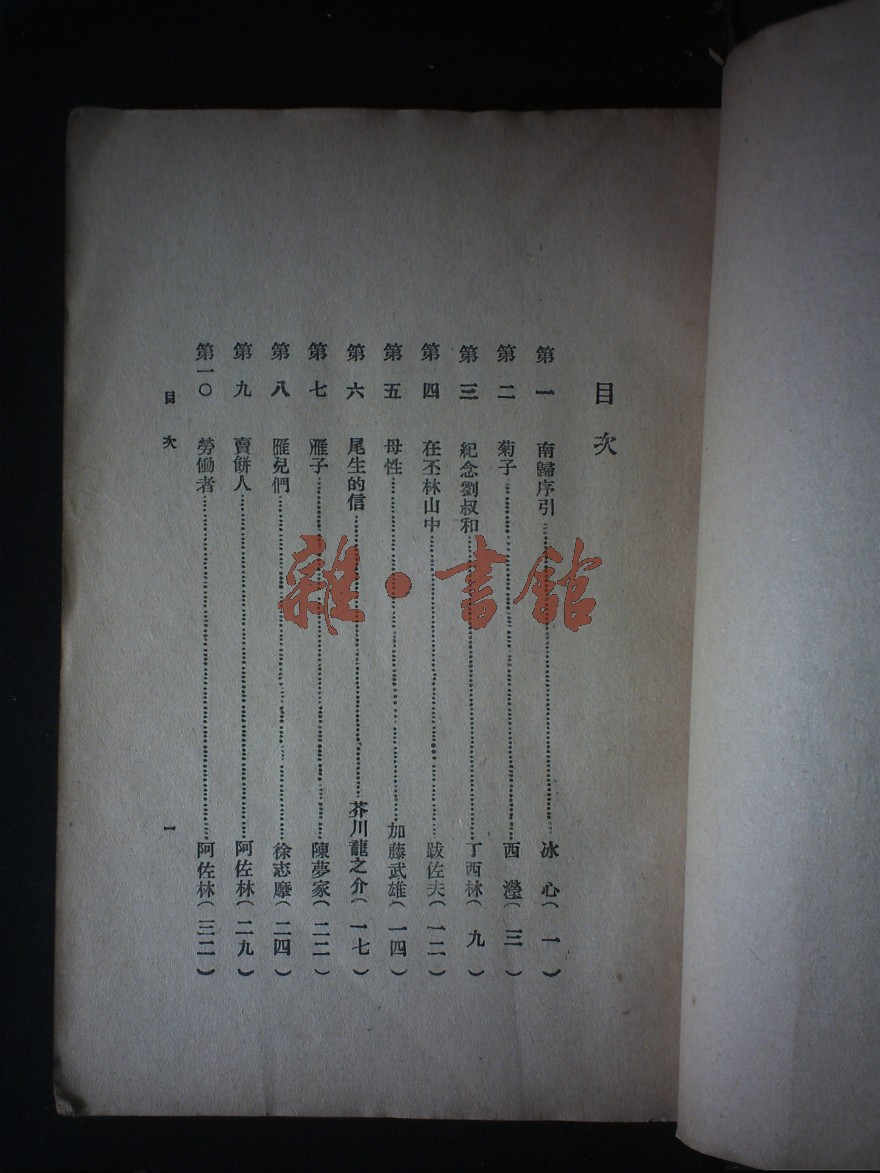 目次
第一 南歸序引……冰心(一)
第二 菊子……西瀅(三)
第三 紀念劉叔和……丁西林(九)
第四 在丕林山中……跋佐夫(一二)
第五 母性……加藤武雄(一四)
第六 尾生的信……芥川龍之介(一七)
第七 雁子……陳夢家(二二)
第八 雁兒們……徐志摩(二四)
第九 賣餅人……阿佐林(二九)
第一〇 勞働者……阿佐林(三二)
目次 一
雜·書館